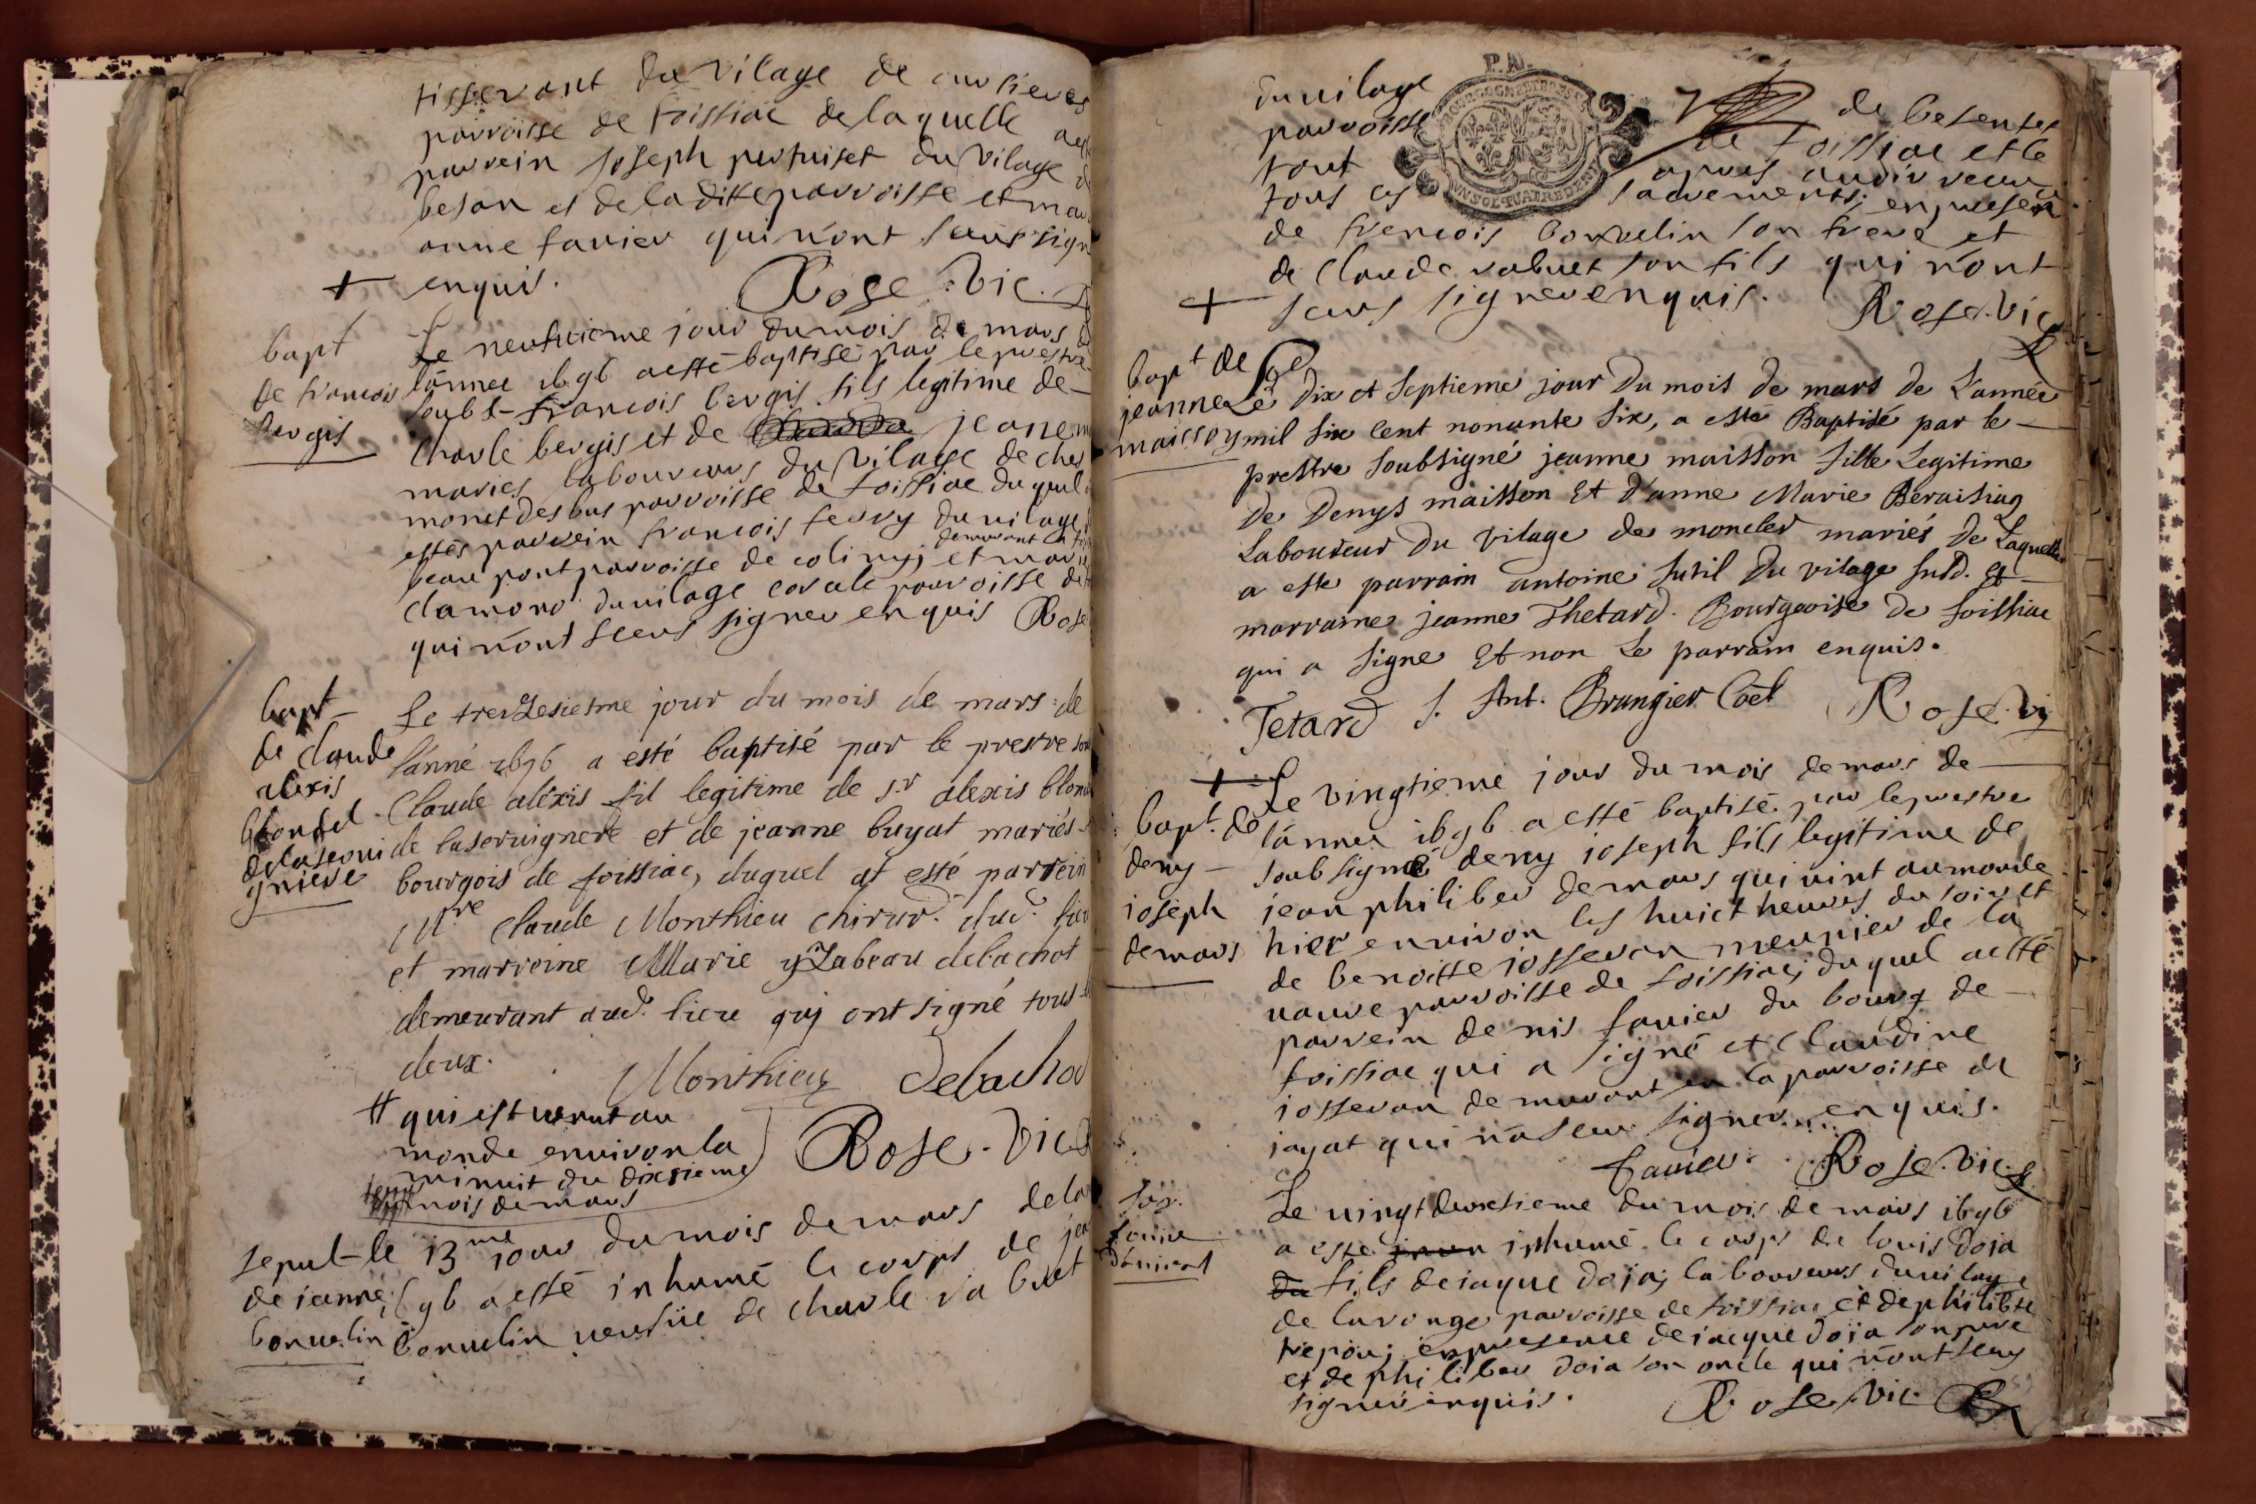 tisserant du vilage de
parroisse de foissiac de laquelle a
parrein joseph pertuiset du vilage
besan et de laditte parroisse et mar
anne favier qui n'ont sceus sign
+ enquis. Rose. Vic.
bapt
de francois
bergis
Le neufvieme jour du mois de mars
l'annee 1696 a esté baptisé par le prestre
soubs- francois bergis fils legitime de
charle bergis et de jeane
maries laboureurs du vilage de
monet des bus parroisse de foissiac duquel
estés parrein francois ferry du vilage
demurant
beau pont parroisse de coligny; et mar
clamono du vilage parroisse
qui n'ont sceus signer enquis Rose
bapt
de claude
alexis
blondel
de laservi
gniere
Le treizesieme jour du mois de mars de
l'anné 1696 a esté baptisé par le prestre
Claude alexis fil legitime de s.r alexis blon
de laservignere et de jeanne buyat mariés
bourgois de foissiac, duquel at esté parrein
M.re Claude Monthieu chirur. dud. lieu
et marreine Marie yzabeau delachot
demeurant aud. lieu qui ont signé tous
deux.
Monthieu Delacho
# qui est venut au
monde environ la
minuit du dixsieme
mois de mars
Rose. Vic
sepul-
de jeanne
bonvelin
le 13me jour du mois de mars de la
1696 a esté inhumé le corps de jea
bonvelin veufve de charle vabuet
du vilage de besentet
parroisse de foissiac et le
tout apres avoir receu
tous les sacrements; en presen
de francois bonvelin son frere et
de Claude vabuet son fils qui n'ont
+ sceus signer enquis. Rose. Vic
bapt de
jeanne
maisson
Le dix et septieme jour du mois de mars de L'année
mil six cent nonante six, a esté Baptisé par le
prestre soubsigné jeanne maisson fille Legitime
de Denys maisson Et d'anne Marie Beraisiag
Laboureur du vilage de moncler mariés de Laquelle
a esté parrain antoine sutil du vilage susd. et
marraine jeanne Thetard. Bourgeoise de foissiac
qui a signé Et non Le parrain enquis.
Tetard J. Ant. Brangier Coêt Rose. Vi
+
bapt. de
deny
joseph
demars
Le vingtieme jour du mois de mars de
l'annee 1696 a esté baptisé par le prestre
soubsigné deny joseph fils legitime de
jean philiber demars qui vint au monde
hier environ les huict heures du soir et
de benoitte josseran meunier de la
vauve parroisse de foissiac; duquel a esté
parrein denis favier du bourg de
foissiac qui a signé et Claudine
josseran demurant en la parroisse de
jayat qui n'a sceu signer enquis.
favier. Rose. Vic.
Le vingt deuxieme du mois de mars 1696
a esté inhumé le corps de louis doia
fils de jaque doia; laboureurs du vilage
de lavonge parroisse de foissiac et de philiberte
en presence de jacque doia son pere
et de philiber doia son oncle qui n'ont sceus
signer enquis. Rose. Vic